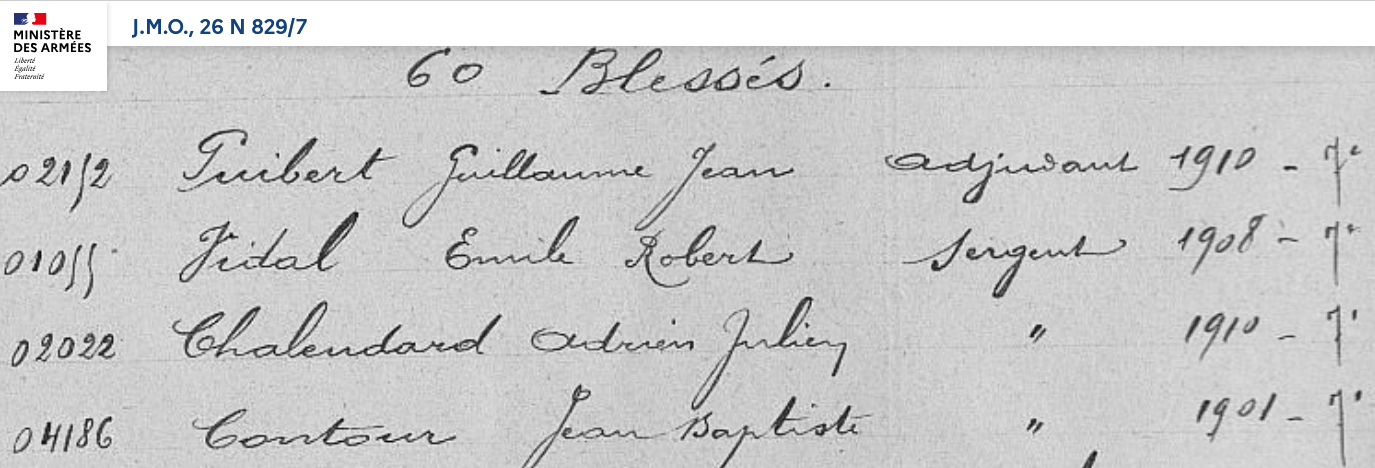 MINISTÈRE
DES ARMÉES
Liberté
Égalité
Fraternité
J.M.O., 26 N 829/7
60 Blessés.
02152 Guibert Guillaume Jean adjudant 1910 - 7e
01055 Vidal Emile Robert Sergent 1908 - 7e
02022 Chalendard Adrien Julien " 1910 - 7e
04186 Contour Jean Baptiste " 1901 - 7e